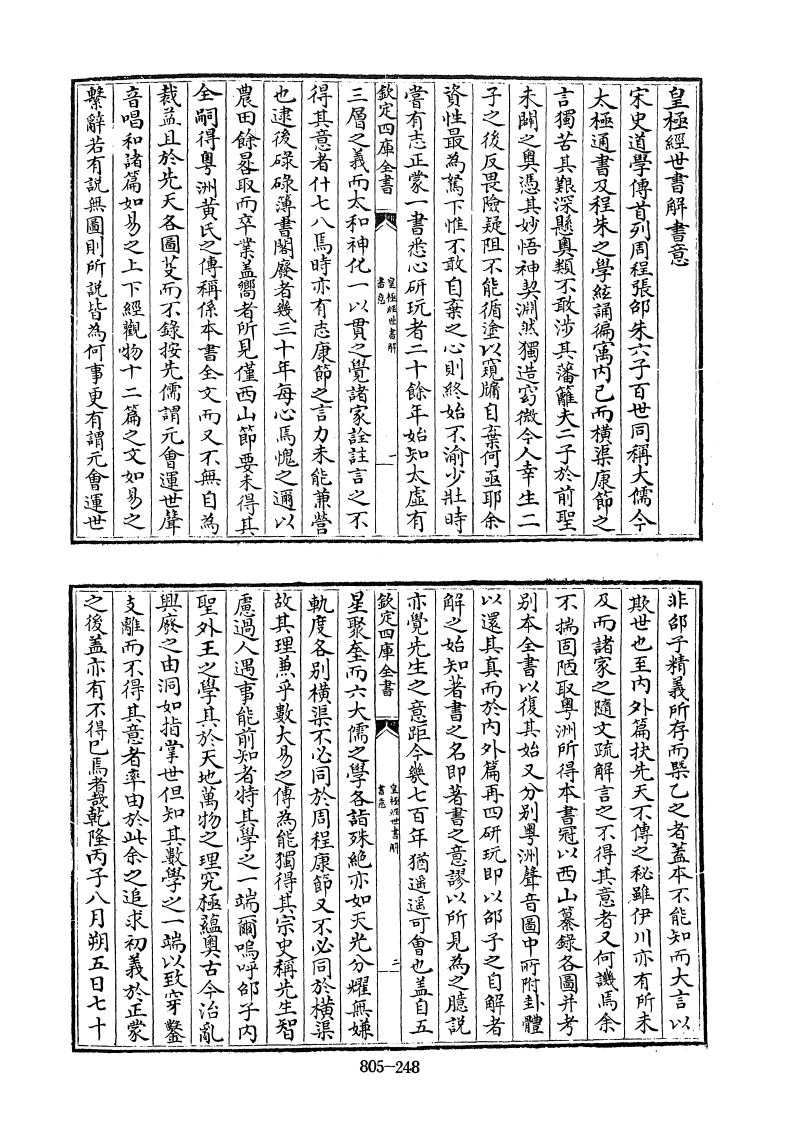 皇極經世書解書意
宋史道學傳首列周程張邵朱六子百世同稱大儒今
太極通書及程朱之學絃誦徧寓内已而橫渠康節之
言獨苦其艱深懸奥類不敢涉其藩籬夫二子於前聖
未闢之奥憑其妙悟神契淵然獨造窈微今人幸生二
子之後反畏險疑阻不能循塗以窺牖自棄何亟耶余
資性最為駑下惟不敢自棄之心則終始不渝少壯時
嘗有志正蒙一書悉心研玩者二十餘年始知太虛有
欽定四庫全書
皇極經世書解
書意
一
三層之義而太和神化一以貫之覺諸家詮註言之不
得其意者什七八焉時亦有志康節之言力未能兼營
也逮後碌碌薄書閣廢者幾三十年每心焉愧之邇以
農田餘晷取而卒業盖嚮者所見僅西山節要未得其
全嗣得粤洲黄氏之傳稱係本書全文而又不無自為
裁益且於先天各圖芟而不錄按先儒謂元會運世聲
音唱和諸篇如易之上下經觀物十二篇之文如易之
繫辭若有說無圖則所說皆為何事更有謂元會運世
非邵子精義所存而槩乙之者盖本不能知而大言以
欺世也至内外篇抉先天不傳之秘雖伊川亦有所未
及而諸家之隨文疏解言之不得其意者又何譏焉余
不揣固陋取粤洲所得本書冠以西山纂錄各圖并考
别本全書以復其始又分别粤洲聲音圖中所附卦體
以還其真而於内外篇再四研玩即以邵子之自解者
解之始知著書之名即著書之意謬以所見為之臆說
亦覺先生之意距今幾七百年猶遥遥可會也盖自五
欽定四庫全書
皇極經世書解
書意
二
星聚奎而六大儒之學各詣殊絶亦如天光分耀無嫌
軌度各别橫渠不必同於周程康節又不必同於橫渠
故其理兼乎數大易之傳為能獨得其宗史稱先生智
慮過人遇事能前知者特其學之一端爾嗚呼邵子内
聖外王之學其於天地萬物之理究極蘊奥古今治亂
興廢之由洞如指掌世但知其數學之一端以致穿鑿
支離而不得其意者率由於此余之追求初義於正蒙
之後盖亦有不得已焉者哉乾隆丙子八月朔五日七十
805-248